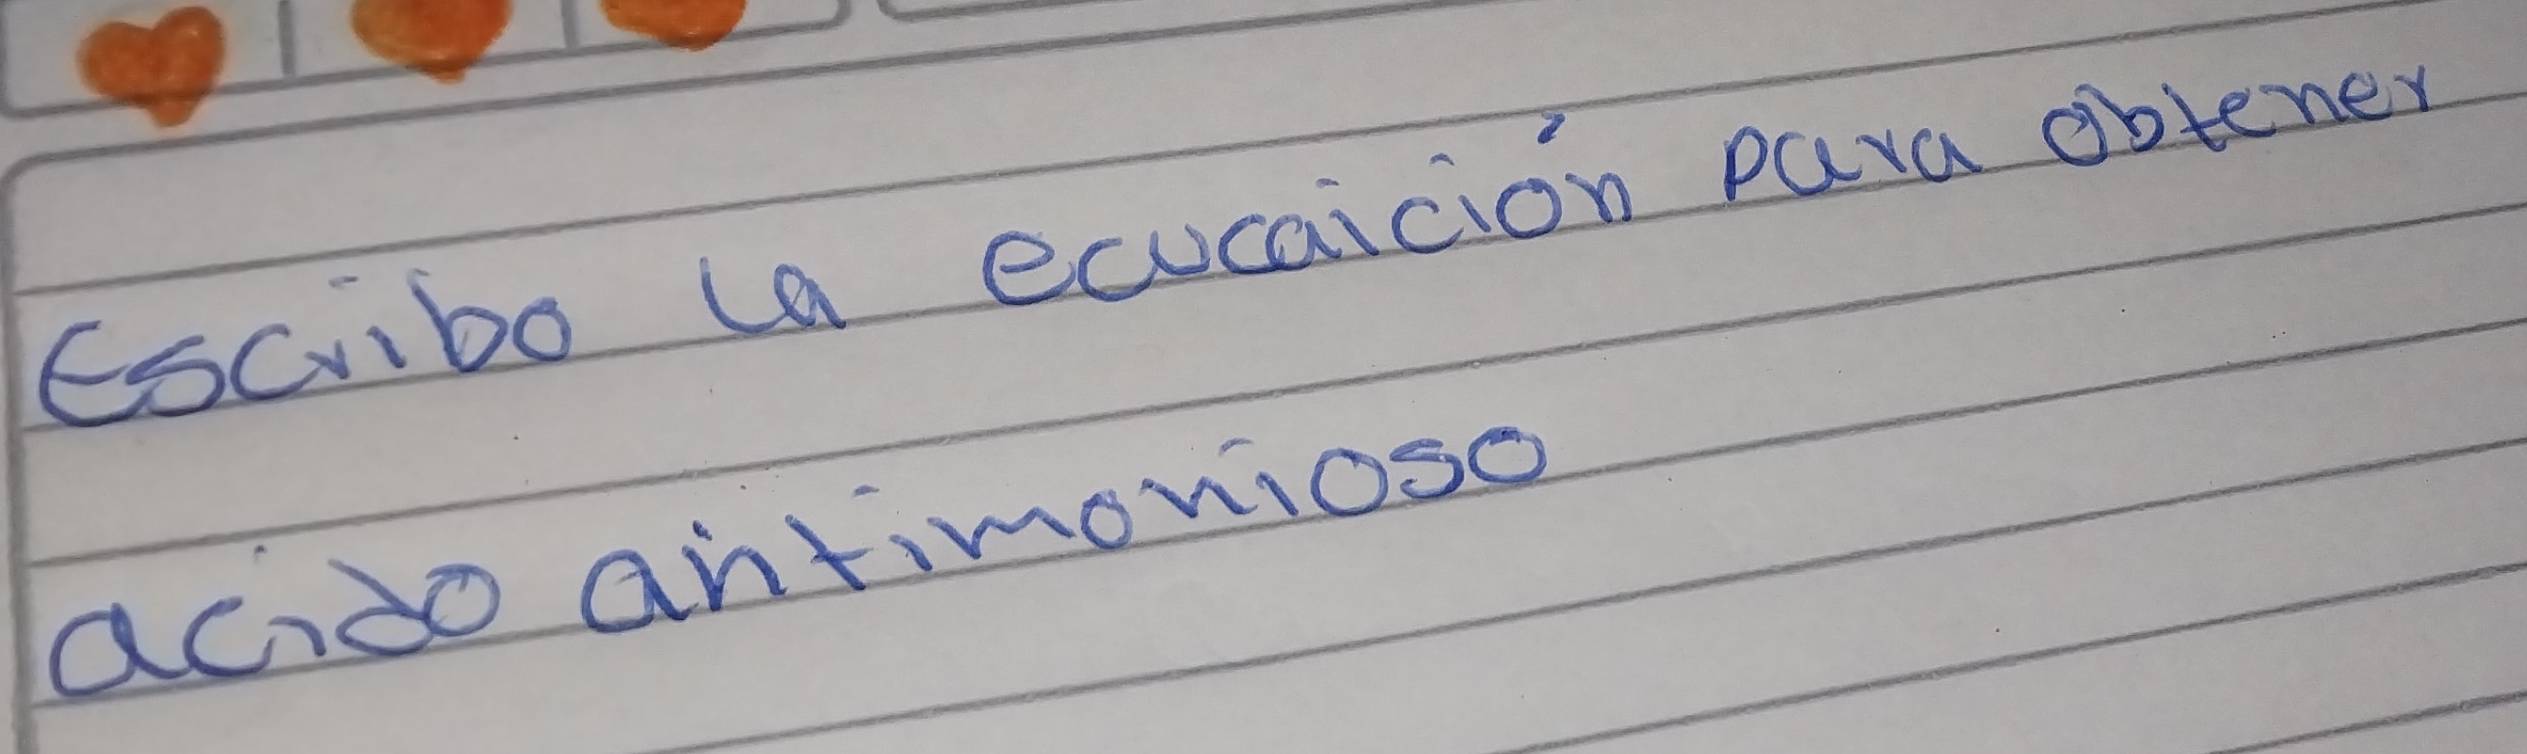 Escribo la ecucaición para obtener
acido antimonioso